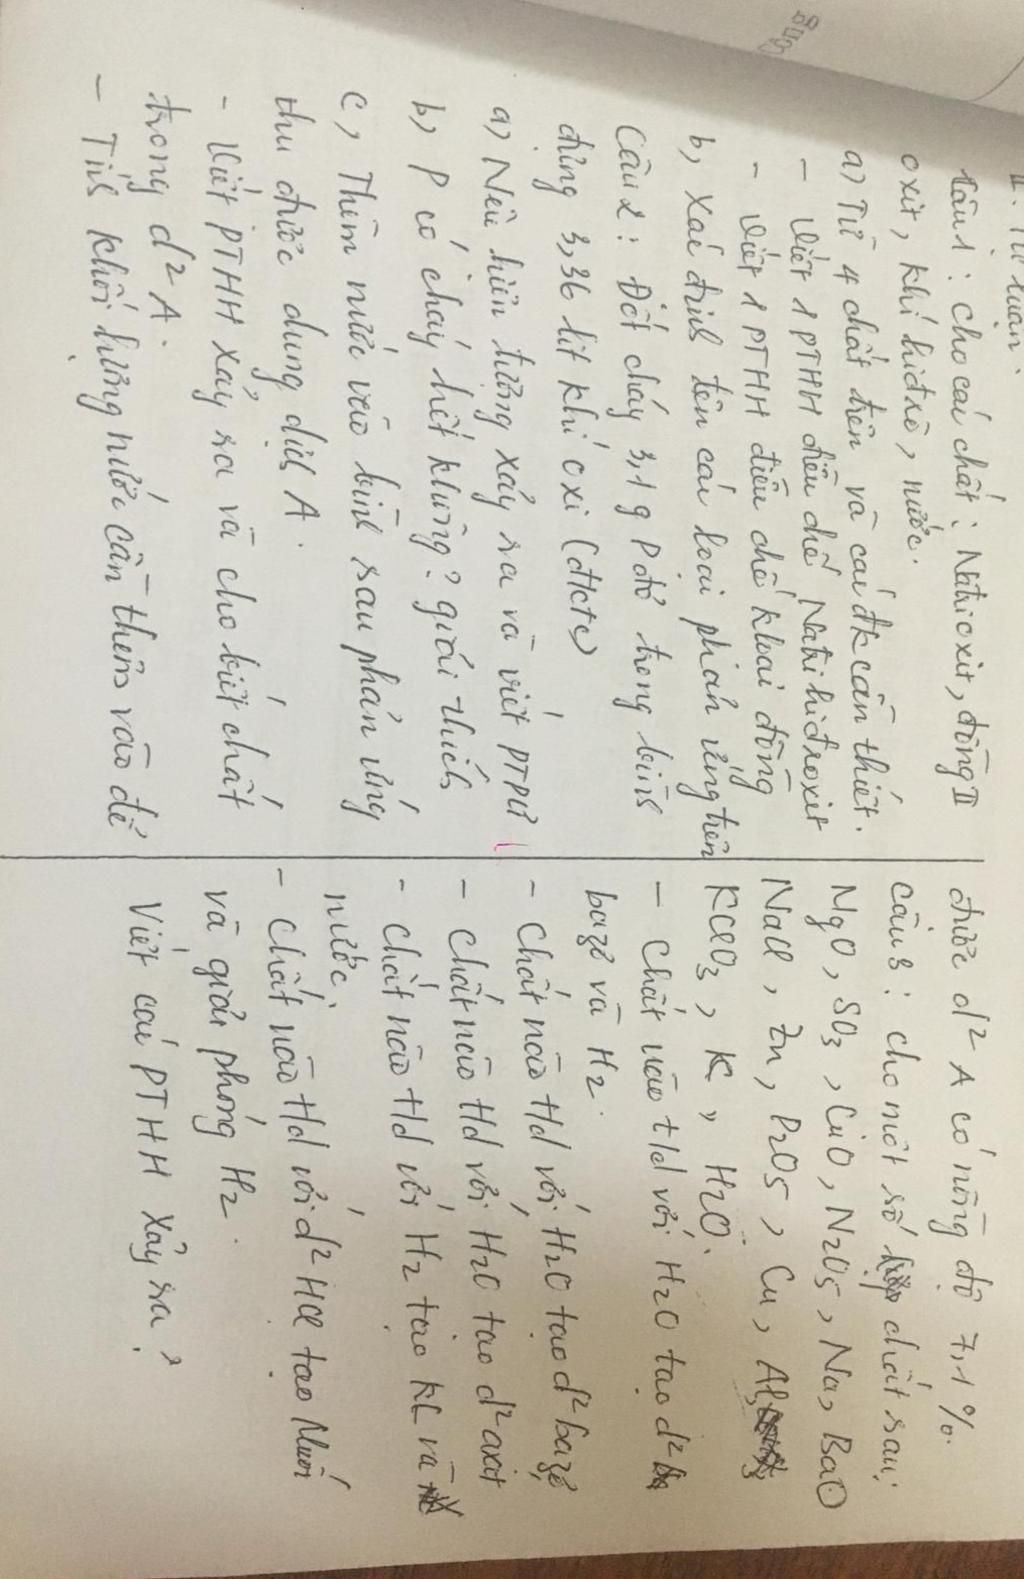 II. Tự luận.
Câu 1: Cho các chất: Natri oxit, đồng II
oxit, khí hiđrô, nước.
a) Từ 4 chất trên và các đk cần thiết.
- Viết 1 PTHH điều chế Natri hiđroxit
- Viết 1 PTHH điều chế kloai đồng
b, Xác định tên các loại phản ứng trên
Câu 2: Đốt cháy 3,1 g P đỏ trong bình
đựng 3,36 lit khí oxi (đktc)
a) Nêu hiện tượng xảy ra và viết PTPƯ
b, P có cháy hết không? giải thích
c, Thêm nước vào bình sau phản ứng
thu được dung dịch A.
- Viết PTHH xảy ra và cho biết chất
trong d² A.
- Tính khối lượng nước cần thêm vào để
được d² A có nồng độ 7,1%.
Câu 3: cho một số chất sau:
MgO, SO3, CuO, N2O5, Na, BaO
NaCl, Zn, P2O5, Cu, Al,
KClO3, K, H2O.
- Chất nào t/d với H2O tạo d²
bazơ và H2.
- Chất nào t/d với H2O tạo d² bazơ
- Chất nào t/d với H2O tạo d² axit
- Chất nào t/d với H2 tạo KL và
nước.
- Chất nào t/d với d² HCl tạo Muối
và giải phóng H2.
Viết các PTHH xảy ra?